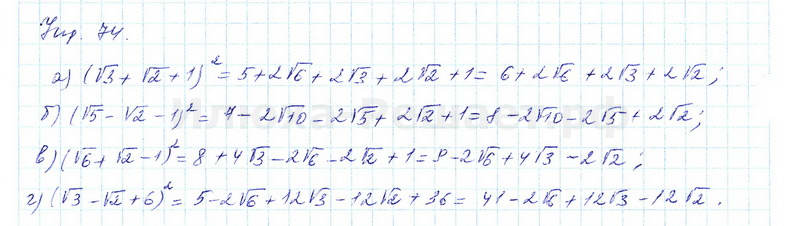 Упр. 74.
а) (√3 + √2 + 1)² = 5 + 2√6 + 2√3 + 2√2 + 1 = 6 + 2√6 + 2√3 + 2√2;
б) (√5 - √2 - 1)² = 7 - 2√10 - 2√5 + 2√2 + 1 = 8 - 2√10 - 2√5 + 2√2;
в) (√6 + √2 - 1)² = 8 + 4√3 - 2√6 - 2√2 + 1 = 9 - 2√6 + 4√3 - 2√2;
г) (√3 - √2 + 6)² = 5 - 2√6 + 12√3 - 12√2 + 36 = 41 - 2√6 + 12√3 - 12√2.